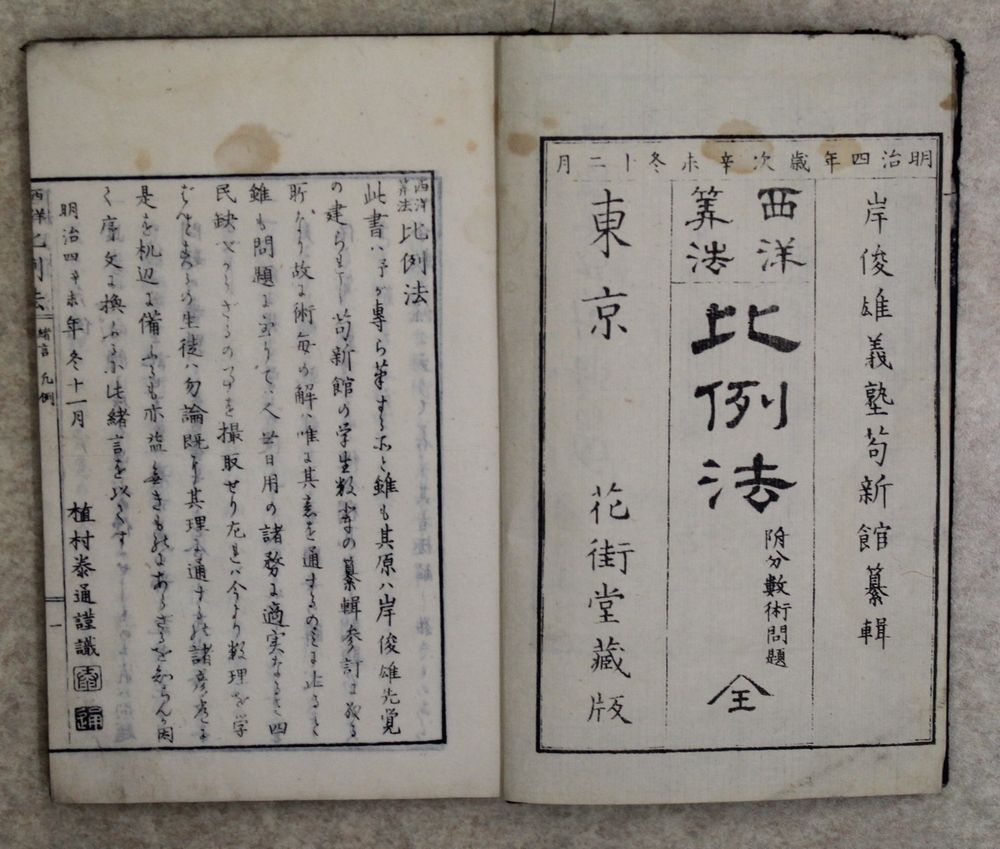 明治四年歳次辛未冬十二月
岸俊雄義塾苟新館纂輯
西洋
筭法
比例法
附分數術問題
全
東京 花街堂藏版
西洋
筭法
比例法
此書ハ予が專ら筆する所と雖も其原ハ岸俊雄先覚
の建られし苟新館の学生数輩の纂輯参訂に成る
所なり故に術毎の解ハ唯に其意を通するのミに止るへく
雖も問題に至りてハ人世日用の諸務に適実なるを四
民缺へからさるの事を撮取せり
今より数理を学
生徒ハ勿論既に其理に通する諸彦
是を机辺に備ふるも亦益無きも
く序文に換ふるに此緒言を以てす
明治四辛未年冬十一月
植村泰通謹識
西洋比例法 緒言 凡例
一